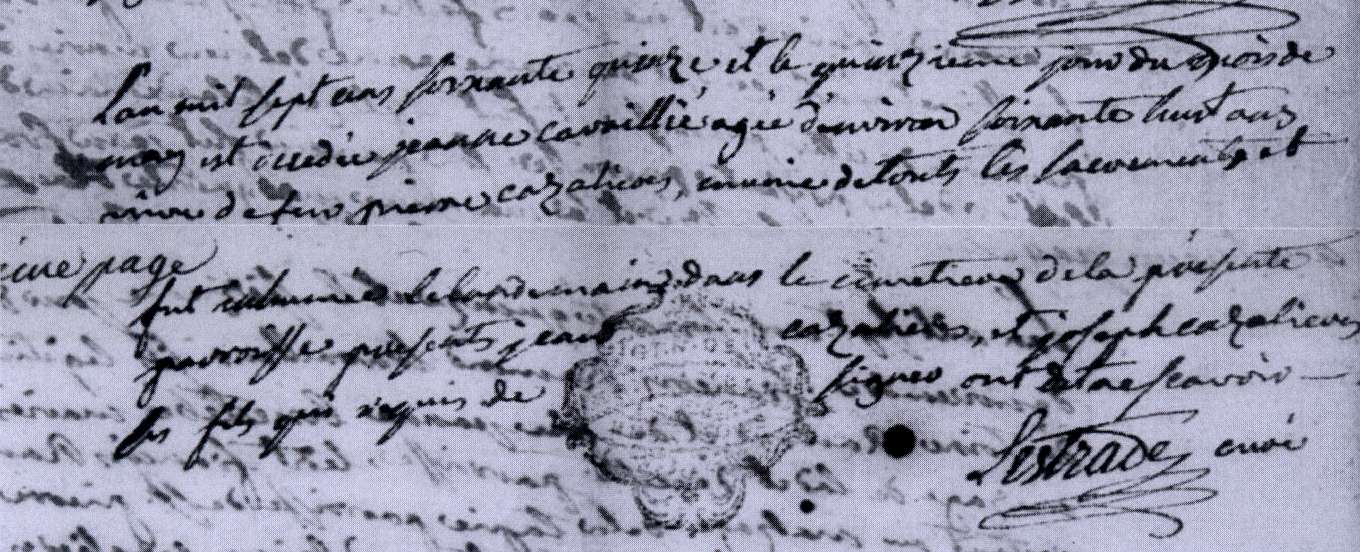 L'an mil sept cens soixante quinze et le quinzieme jour du mois de
may est decedée jeanne cavaillié agée d'environ soixante huit ans
veuve de feu pierre cazalieres, munie de touts les sacrements et
page
fut inhumée le landemain dans le cimetiere de la presente
parroisse presents jean cazalieres, et joseph cazalieres
ses fils qui requis de signer ont dit ne scavoir
Lestrade curé